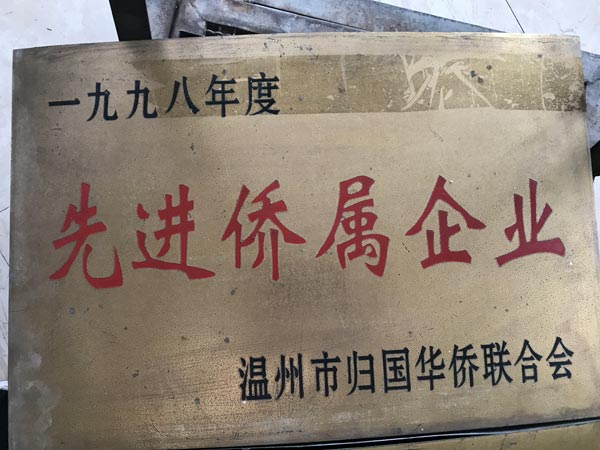 一九九八年度
先进侨属企业
温州市归国华侨联合会